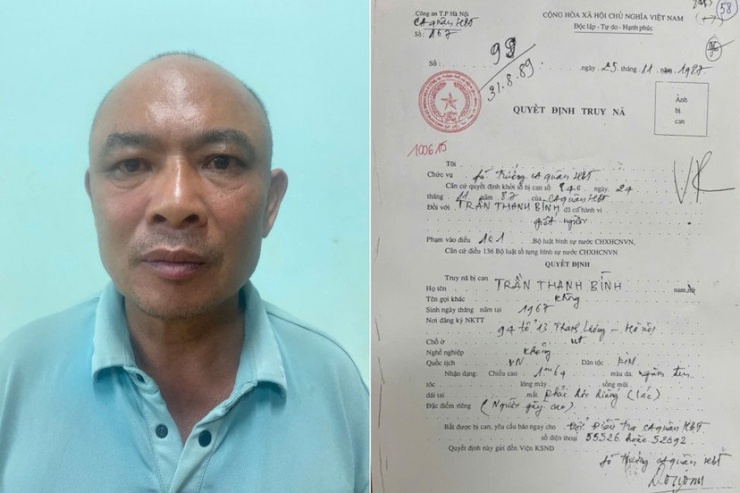 Công an T.P Hà Nội
CA quận HBT
Số: 167
CỘNG HÒA XÃ HỘI CHỦ NGHĨA VIỆT NAM
Độc lập - Tự do - Hạnh phúc
58
Số:
99
31.8.89
ngày 25 tháng 11 năm 1987
QUYẾT ĐỊNH TRUY NÃ
Ảnh
bị
can
100615
VK
Tôi
Chức vụ Trưởng CA quận HBT
Căn cứ quyết định khởi tố bị can số 246 ngày 24
tháng 11 năm 87 của CA quận HBT
Đối với TRẦN THANH BÌNH đã có hành vi
giết người
Phạm vào điều 101 Bộ luật hình sự nước CHXHCNVN.
Căn cứ điều 136 Bộ luật tố tụng hình sự nước CHXHCNVN.
QUYẾT ĐỊNH
Truy nã bị can
Họ tên TRẦN THANH BÌNH nam, nữ
Tên gọi khác Không
Sinh ngày tháng năm tại 1967
Nơi đăng ký NKTT 94 tổ 13 Thanh - Hà Nội
Chỗ ở nt
Nghề nghiệp Không
Quốc tịch VN Dân tộc Kinh
Nhận dạng: Chiều cao 1m69 màu da ngăm đen
tóc lông mày sống mũi
dái tai mắt phải (lác)
Đặc điểm riêng (Người gầy cao)
Bắt được bị can, yêu cầu báo ngay cho Đội Điều tra CA quận HBT
số điện thoại 55526 hoặc 52092
Quyết định này gửi đến Viện KSND
Trưởng CA quận HBT